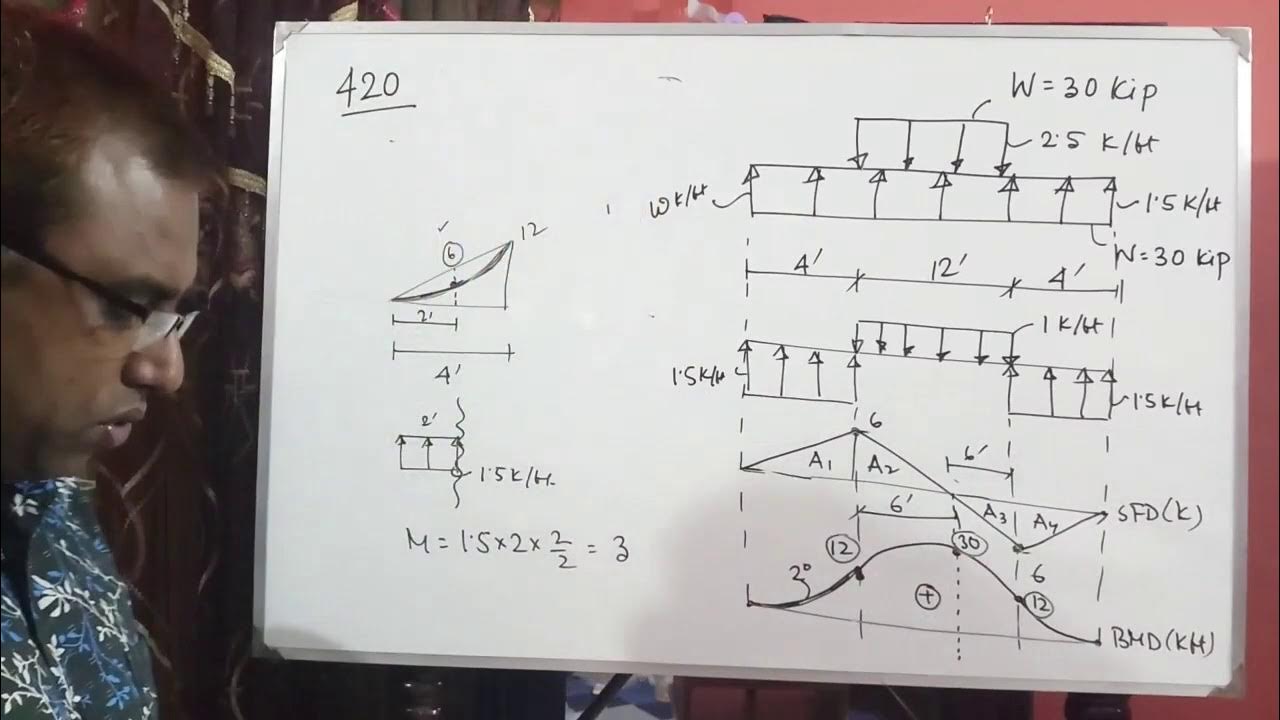 420
W = 30 Kip
2.5 K/ft
W K/ft
1.5 K/ft
W = 30 Kip
4' 12' 4'
12
6
2'
4'
1 K/ft
1.5 K/ft
1.5 K/ft
6
A1 A2
6'
6'
A3 A4
SFD(K)
6
2'
1.5 K/ft
M = 1.5 × 2 × 2/2 = 3
12
30
2°
+
12
BMD(Kft)